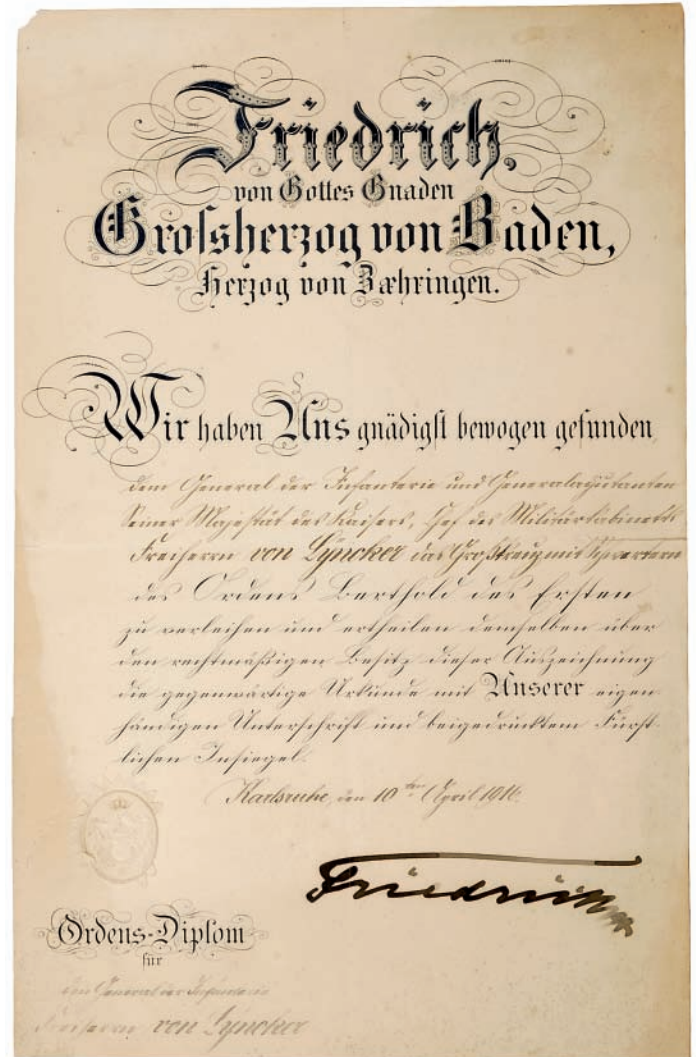 Friedrich,
von Gottes Gnaden
Grossherzog von Baden,
Herzog von Zæhringen.
Wir haben Uns gnädigst bewogen gefunden,
dem General der Infanterie und Generaladjutanten
Seiner Majestät des Kaisers, Chef des Militärkabinetts
Freiherrn von Lyncker das Großkreuz mit Schwertern
des Ordens Berthold des Ersten
zu verleihen und ertheilen demselben über
den rechtmäßigen Besitz dieser Auszeichnung
die gegenwärtige Urkunde mit Unserer eigen-
händigen Unterschrift und beigedrucktem Fürst-
lichen Insiegel.
Karlsruhe, den 10ten April 1916.
Friedrich
Ordens-Diplom
für
den General der Infanterie
Freiherrn von Lyncker